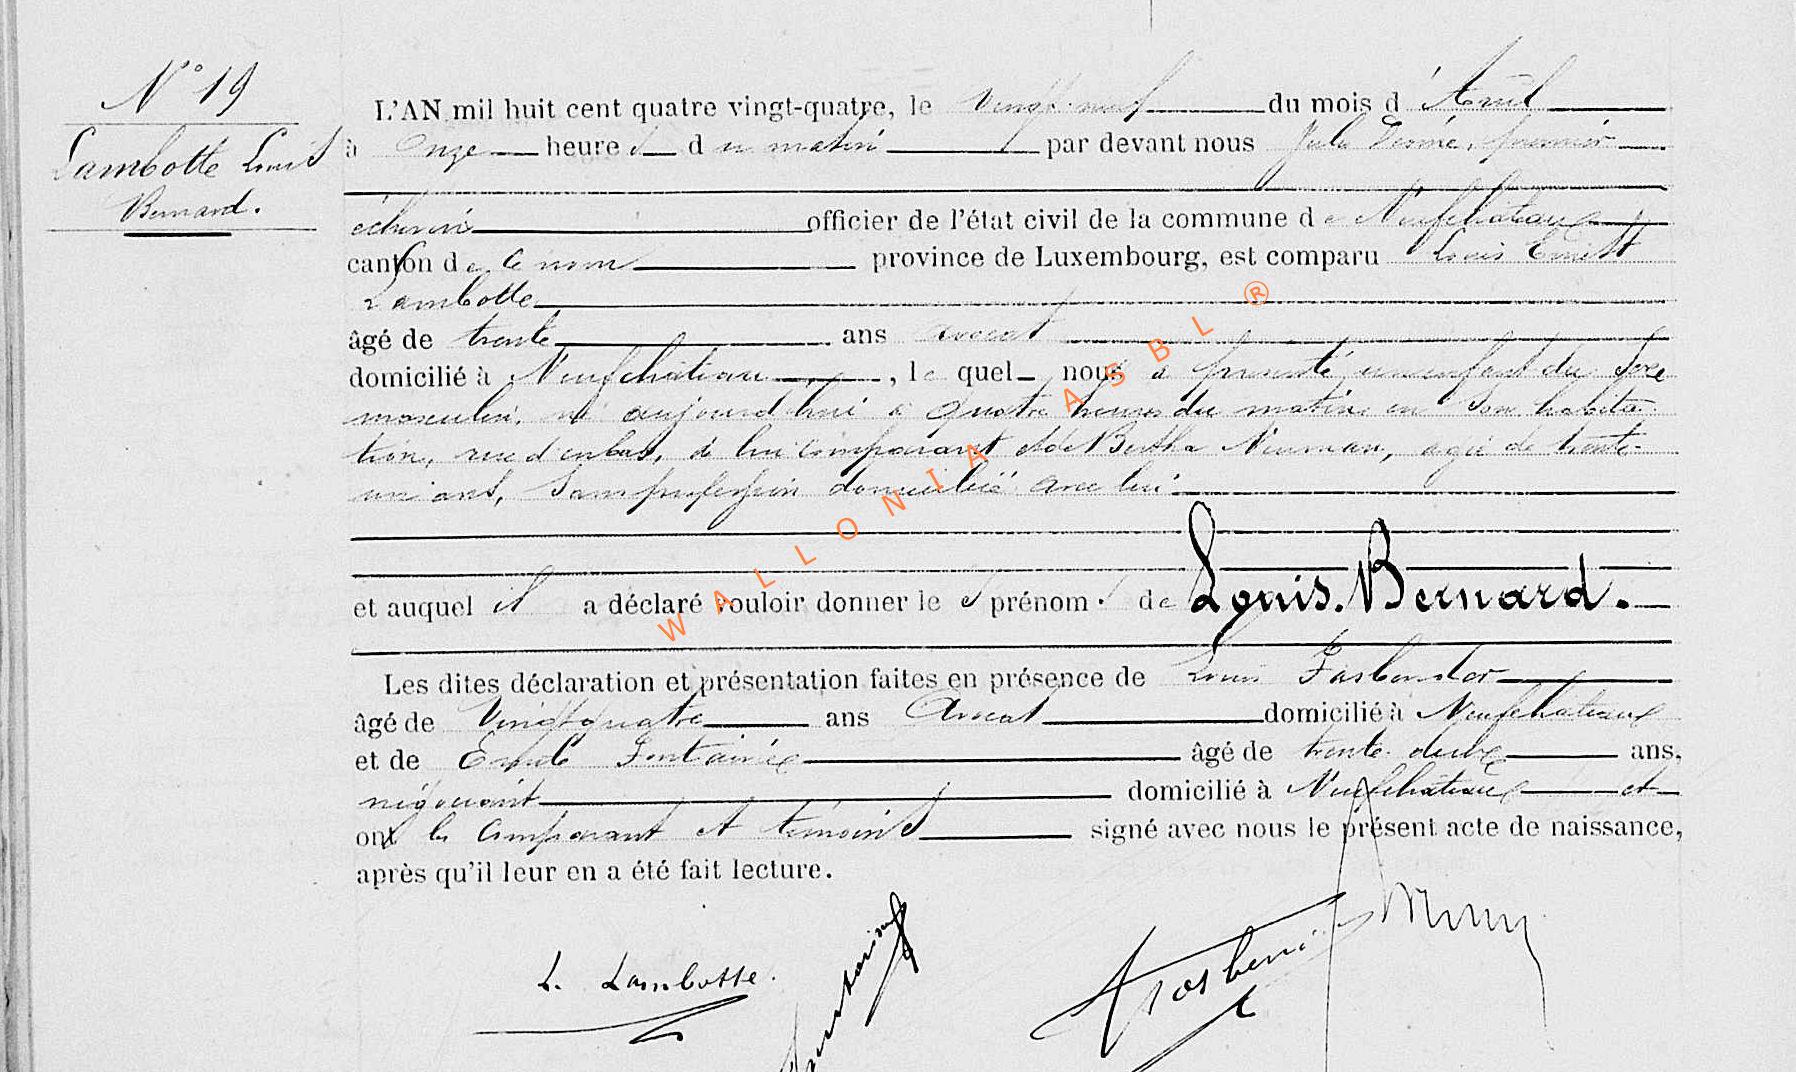 N° 19
Lambotte Louis
Bernard.
L'AN mil huit cent quatre vingt-quatre, le vingt-neuf du mois d'Avril
à onze heures du matin par devant nous Jules premier
échevin officier de l'état civil de la commune de Neufchâteau
canton de ce nom province de Luxembourg, est comparu Louis Ernest
Lambotte
âgé de trente ans avocat
domicilié à Neufchâteau, lequel nous a présenté un enfant du sexe
masculin, né aujourd'hui à quatre heures du matin en son habita-
tion, rue d'enbas, de lui comparant et de Bertha Neuman, agée de trente-
un ans, sans profession domiciliée avec lui
et auquel il a déclaré vouloir donner les prénoms de Louis. Bernard.
Les dites déclaration et présentation faites en présence de Louis Fasbender
âgé de vingt quatre ans Avocat domicilié à Neufchâteau
et de Emile Fontaine âgé de trente-deux ans,
négociant domicilié à Neufchâteau et
ont les comparant et témoins signé avec nous le présent acte de naissance,
après qu'il leur en a été fait lecture.
L. Lambotte.
WALLONIA ASBL ®